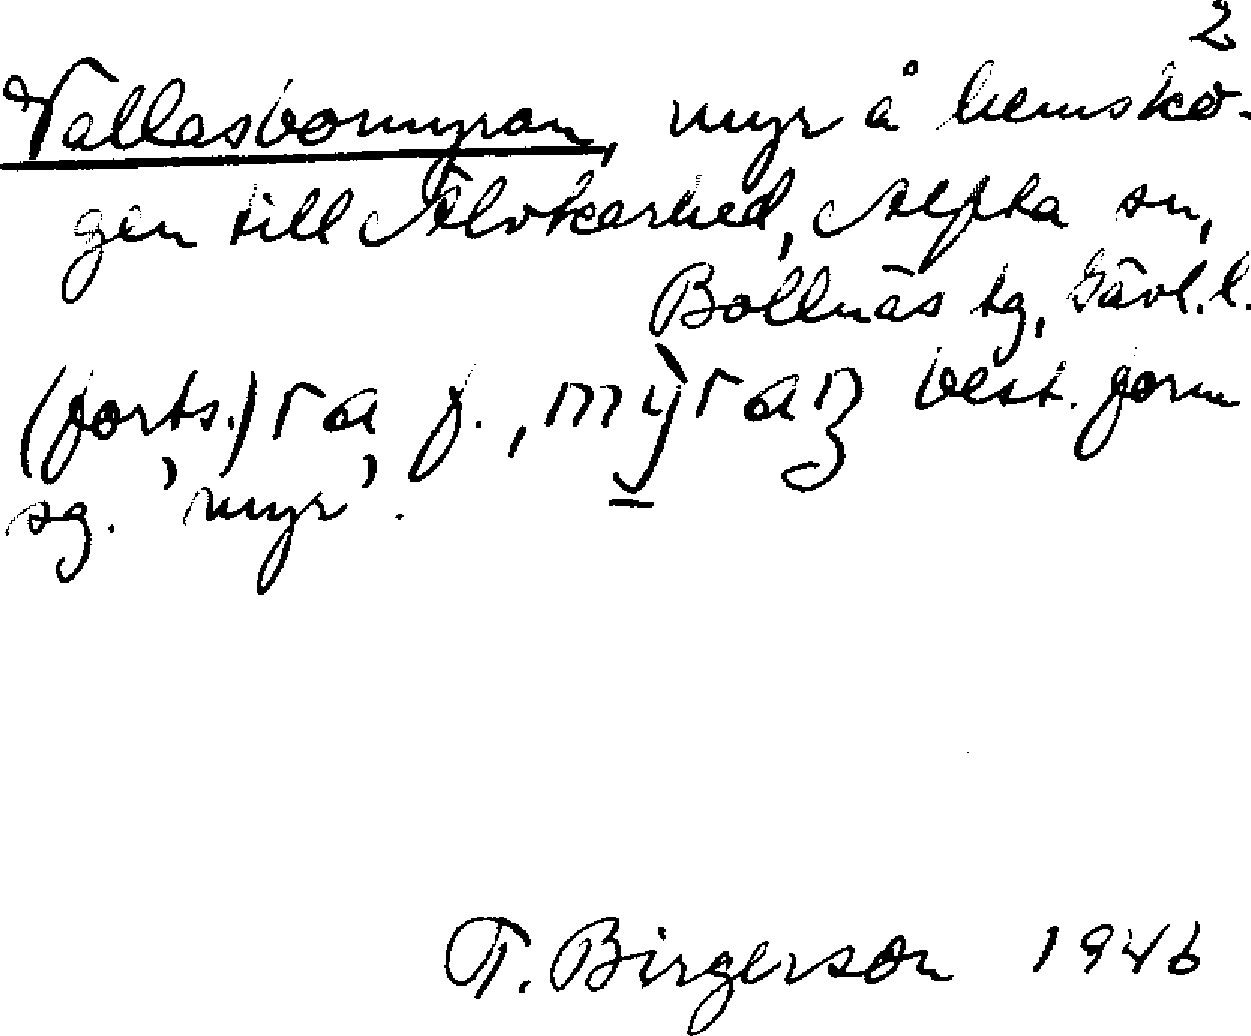 2
Vallasbomyran, myr å hemsko-
gen till Älvkarhed, Alfta sn,
Bollnäs tg, Gävl. l.
(forts.) ra f., mỳran best. form
sg. 'myr'.
T. Birgerson 1946